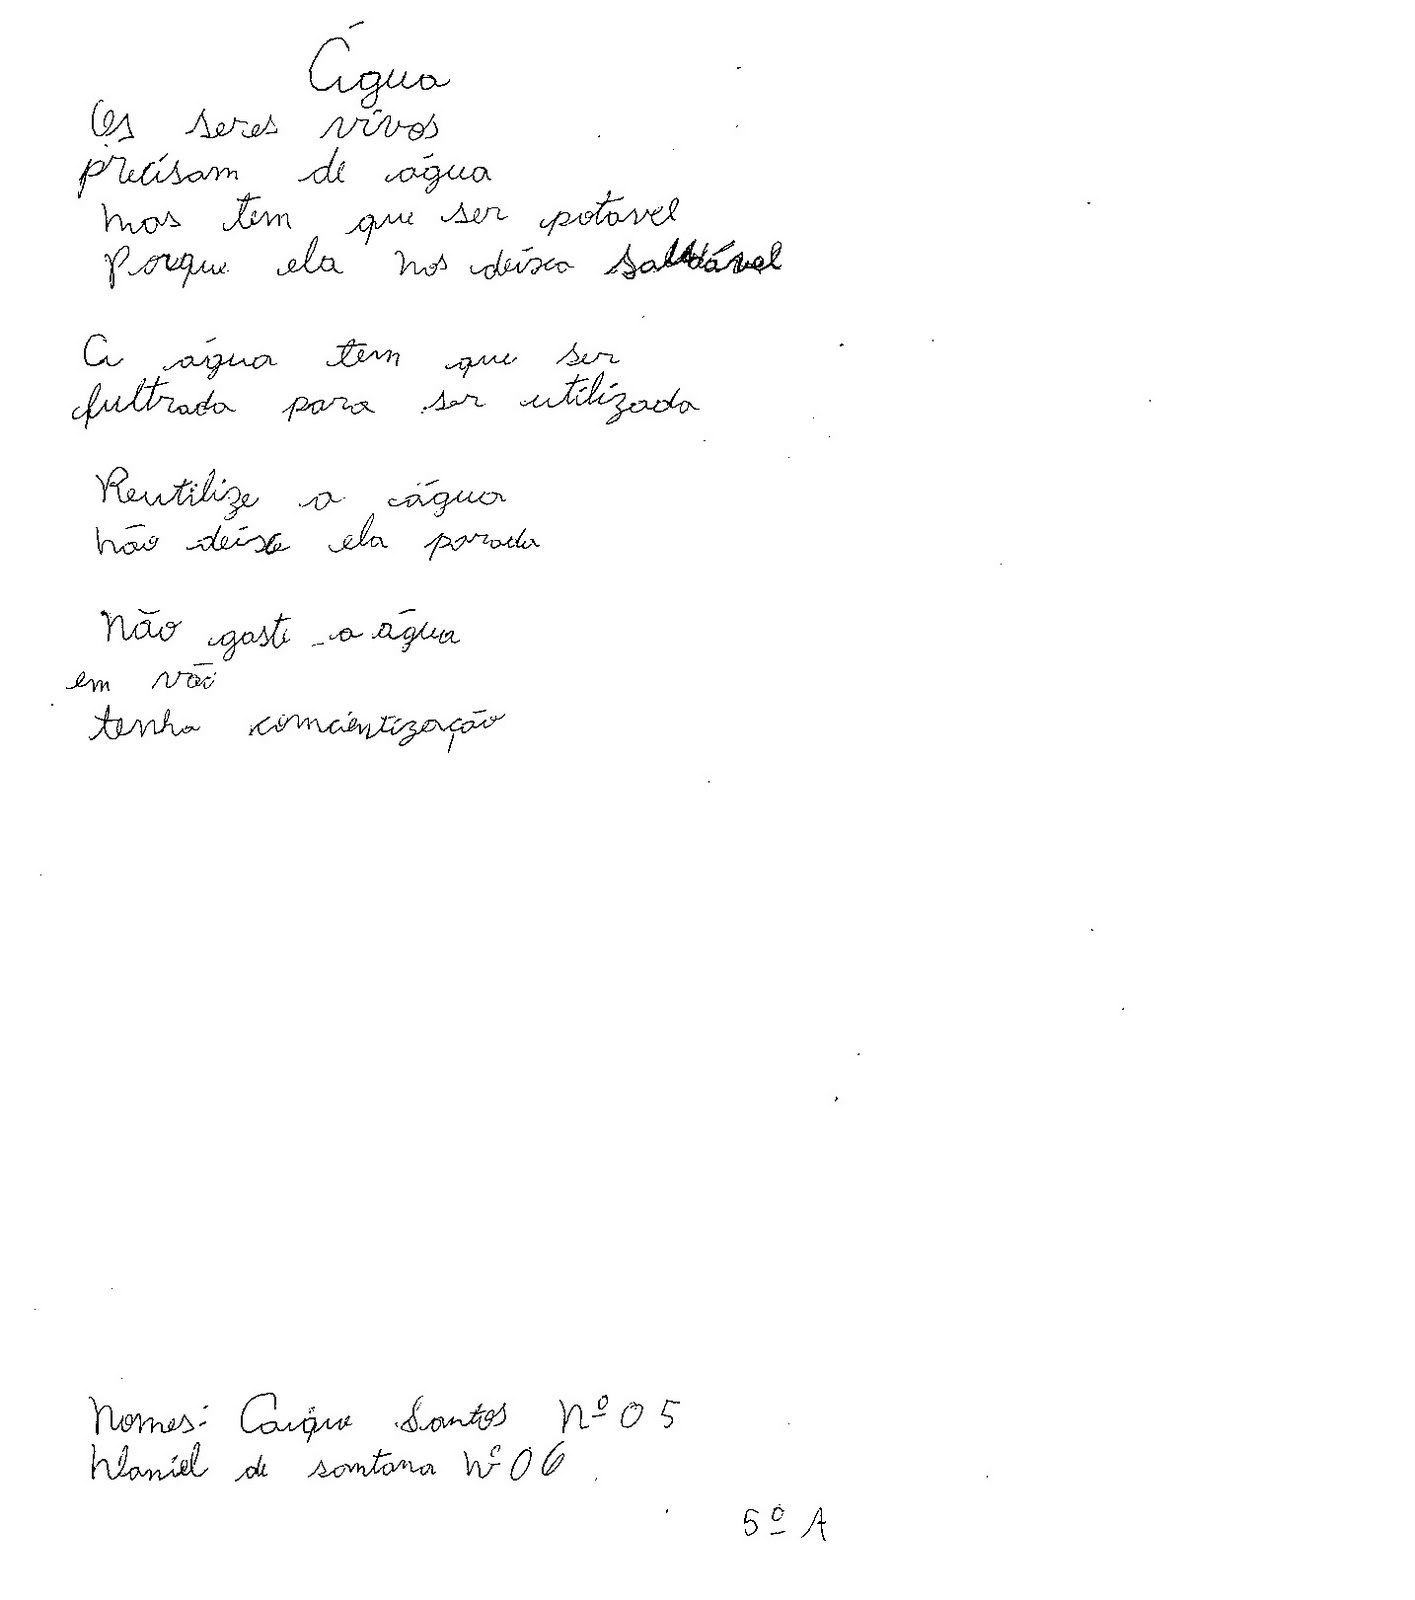 Água
Os seres vivos
precisam de água
mas tem que ser potavel
Porque ela nos deixa saudável
A água tem que ser
fultrada para ser utilizada
Reutilize a água
não deixe ela parada
Não gaste a água
em vão
tenha comcientização
Nomes: Caique Santos Nº 05
de santana Nº 06
5º A